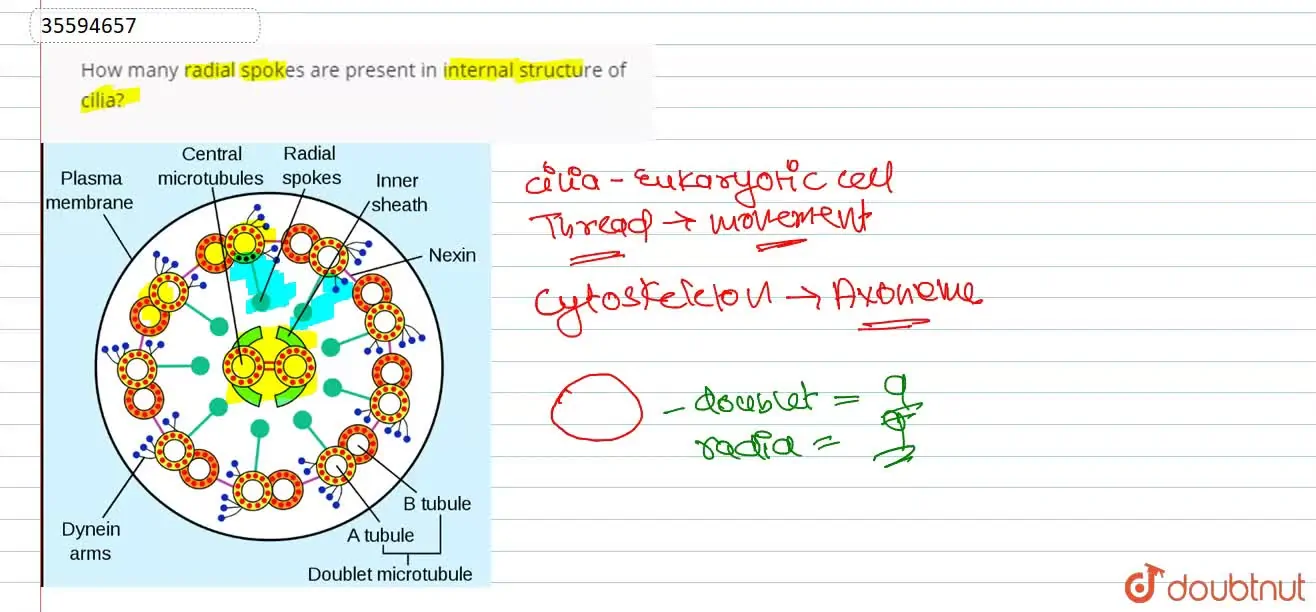 35594657
How many radial spokes are present in internal structure of
cilia?
Central
microtubules
Radial
spokes
Plasma
membrane
Inner
sheath
Nexin
B tubule
A tubule
Dynein
arms
Doublet microtubule
cilia - Eukaryotic cell
Thread → movement
Cytoskeleton → Axoneme
- doublet = 9
radia = 9
doubtnut